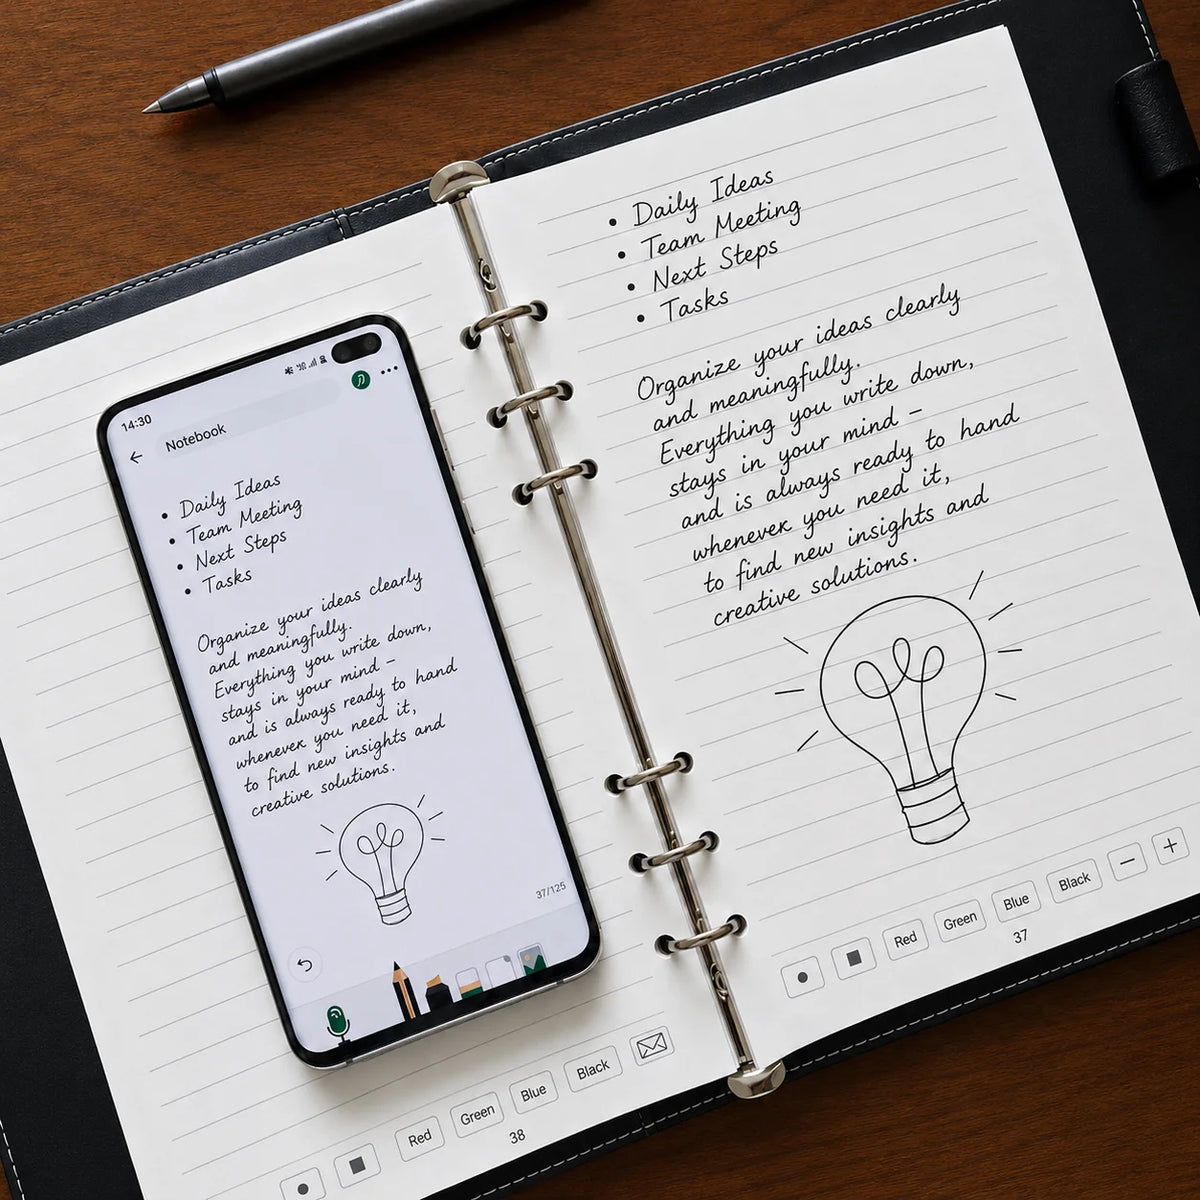 14:30
Notebook
• Daily Ideas
• Team Meeting
• Next Steps
• Tasks
Organize your ideas clearly
and meaningfully.
Everything you write down,
stays in your mind –
and is always ready to hand
whenever you need it,
to find new insights and
creative solutions.
37/125
Red Green Blue Black
38
• Daily Ideas
• Team Meeting
• Next Steps
• Tasks
Organize your ideas clearly
and meaningfully.
Everything you write down,
stays in your mind –
and is always ready to hand
whenever you need it,
to find new insights and
creative solutions.
Red Green Blue Black − +
37